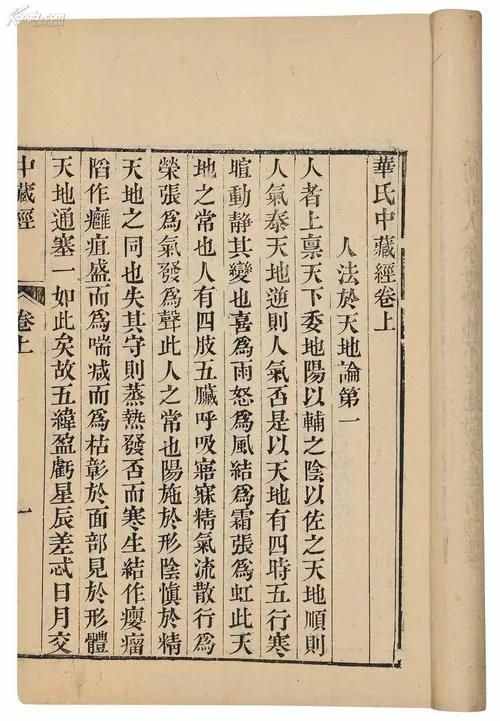 華氏中藏經卷上
人法於天地論第一
人者上禀天下委地陽以輔之陰以佐之天地順則
人氣泰天地逆則人氣否是以天地有四時五行寒
暄動靜其變也喜爲雨怒爲風結爲霜張爲虹此天
地之常也人有四肢五臟呼吸寤寐精氣流散行爲
榮張爲氣發爲聲此人之常也陽施於形陰慎於精
天地之同也失其守則蒸熱發否而寒生結作癭瘤
陷作癰疽盛而爲喘減而爲枯彰於面部見於形體
天地通塞一如此矣故五緯盈虧星辰差忒日月交
中藏經
卷上
一